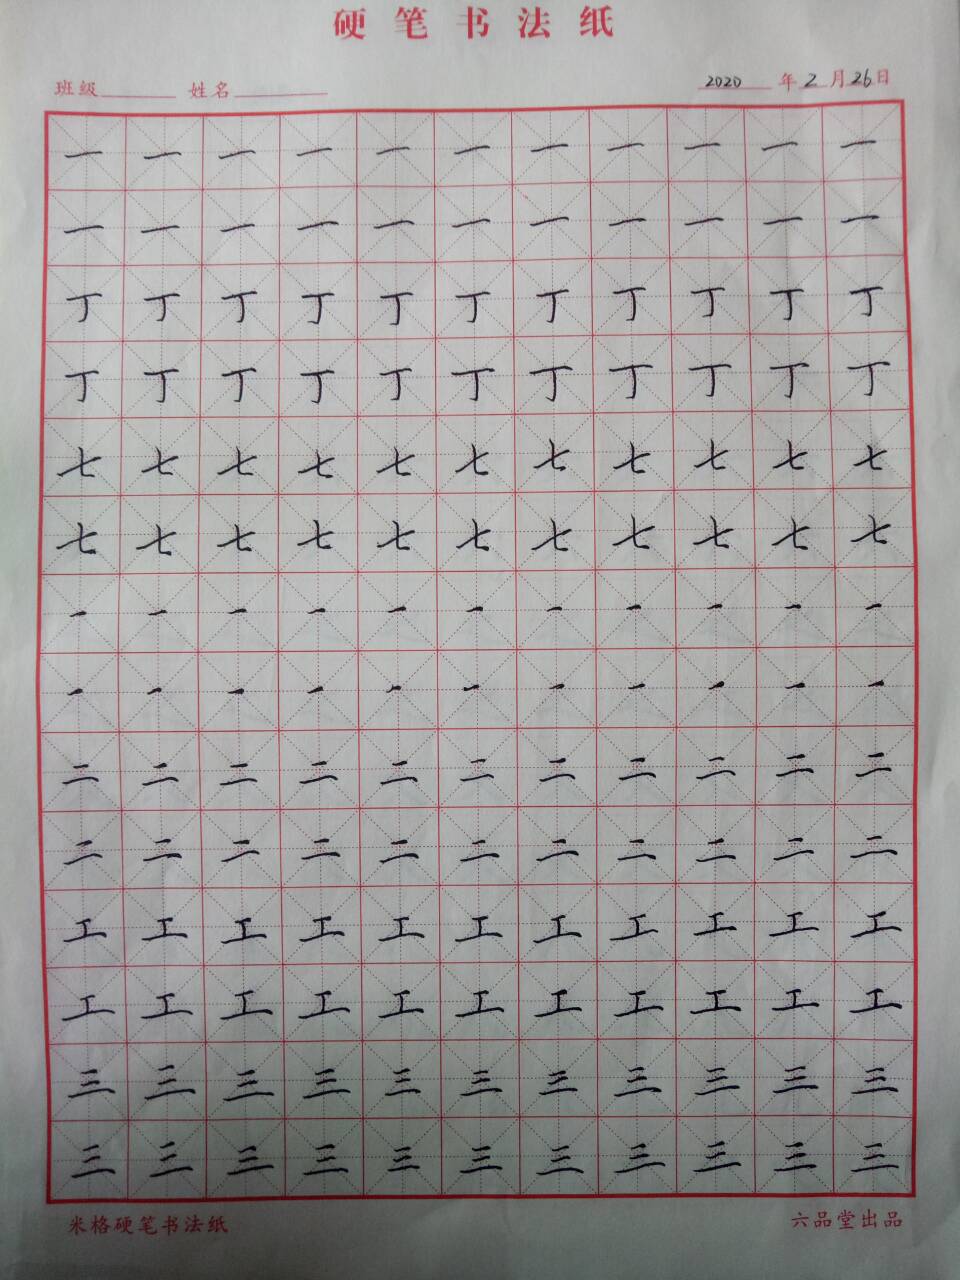 硬笔书法纸
班级 姓名 2020年2月26日
一一一一一一一一一一一
一一一一一一一一一一一
丁丁丁丁丁丁丁丁丁丁丁
丁丁丁丁丁丁丁丁丁丁丁
七七七七七七七七七七七
七七七七七七七七七七七
一一一一一一一一一一一
一一一一一一一一一一一
二二二二二二二二二二二
二二二二二二二二二二二
工工工工工工工工工工工
工工工工工工工工工工工
三三三三三三三三三三三
三三三三三三三三三三三
米格硬笔书法纸 六品堂出品